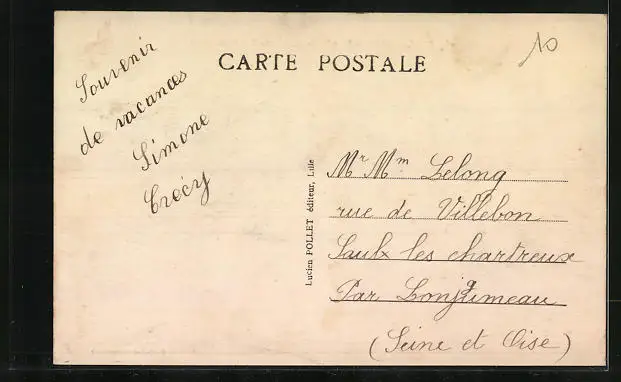 CARTE POSTALE
10
Souvenir
de vacances
Simone
Crécy
Lucien POLLET éditeur, Lille
Mr Mm Lelong
rue de Villebon
Saulx les chartreux
Par Lonjumeau
(Seine et Oise)